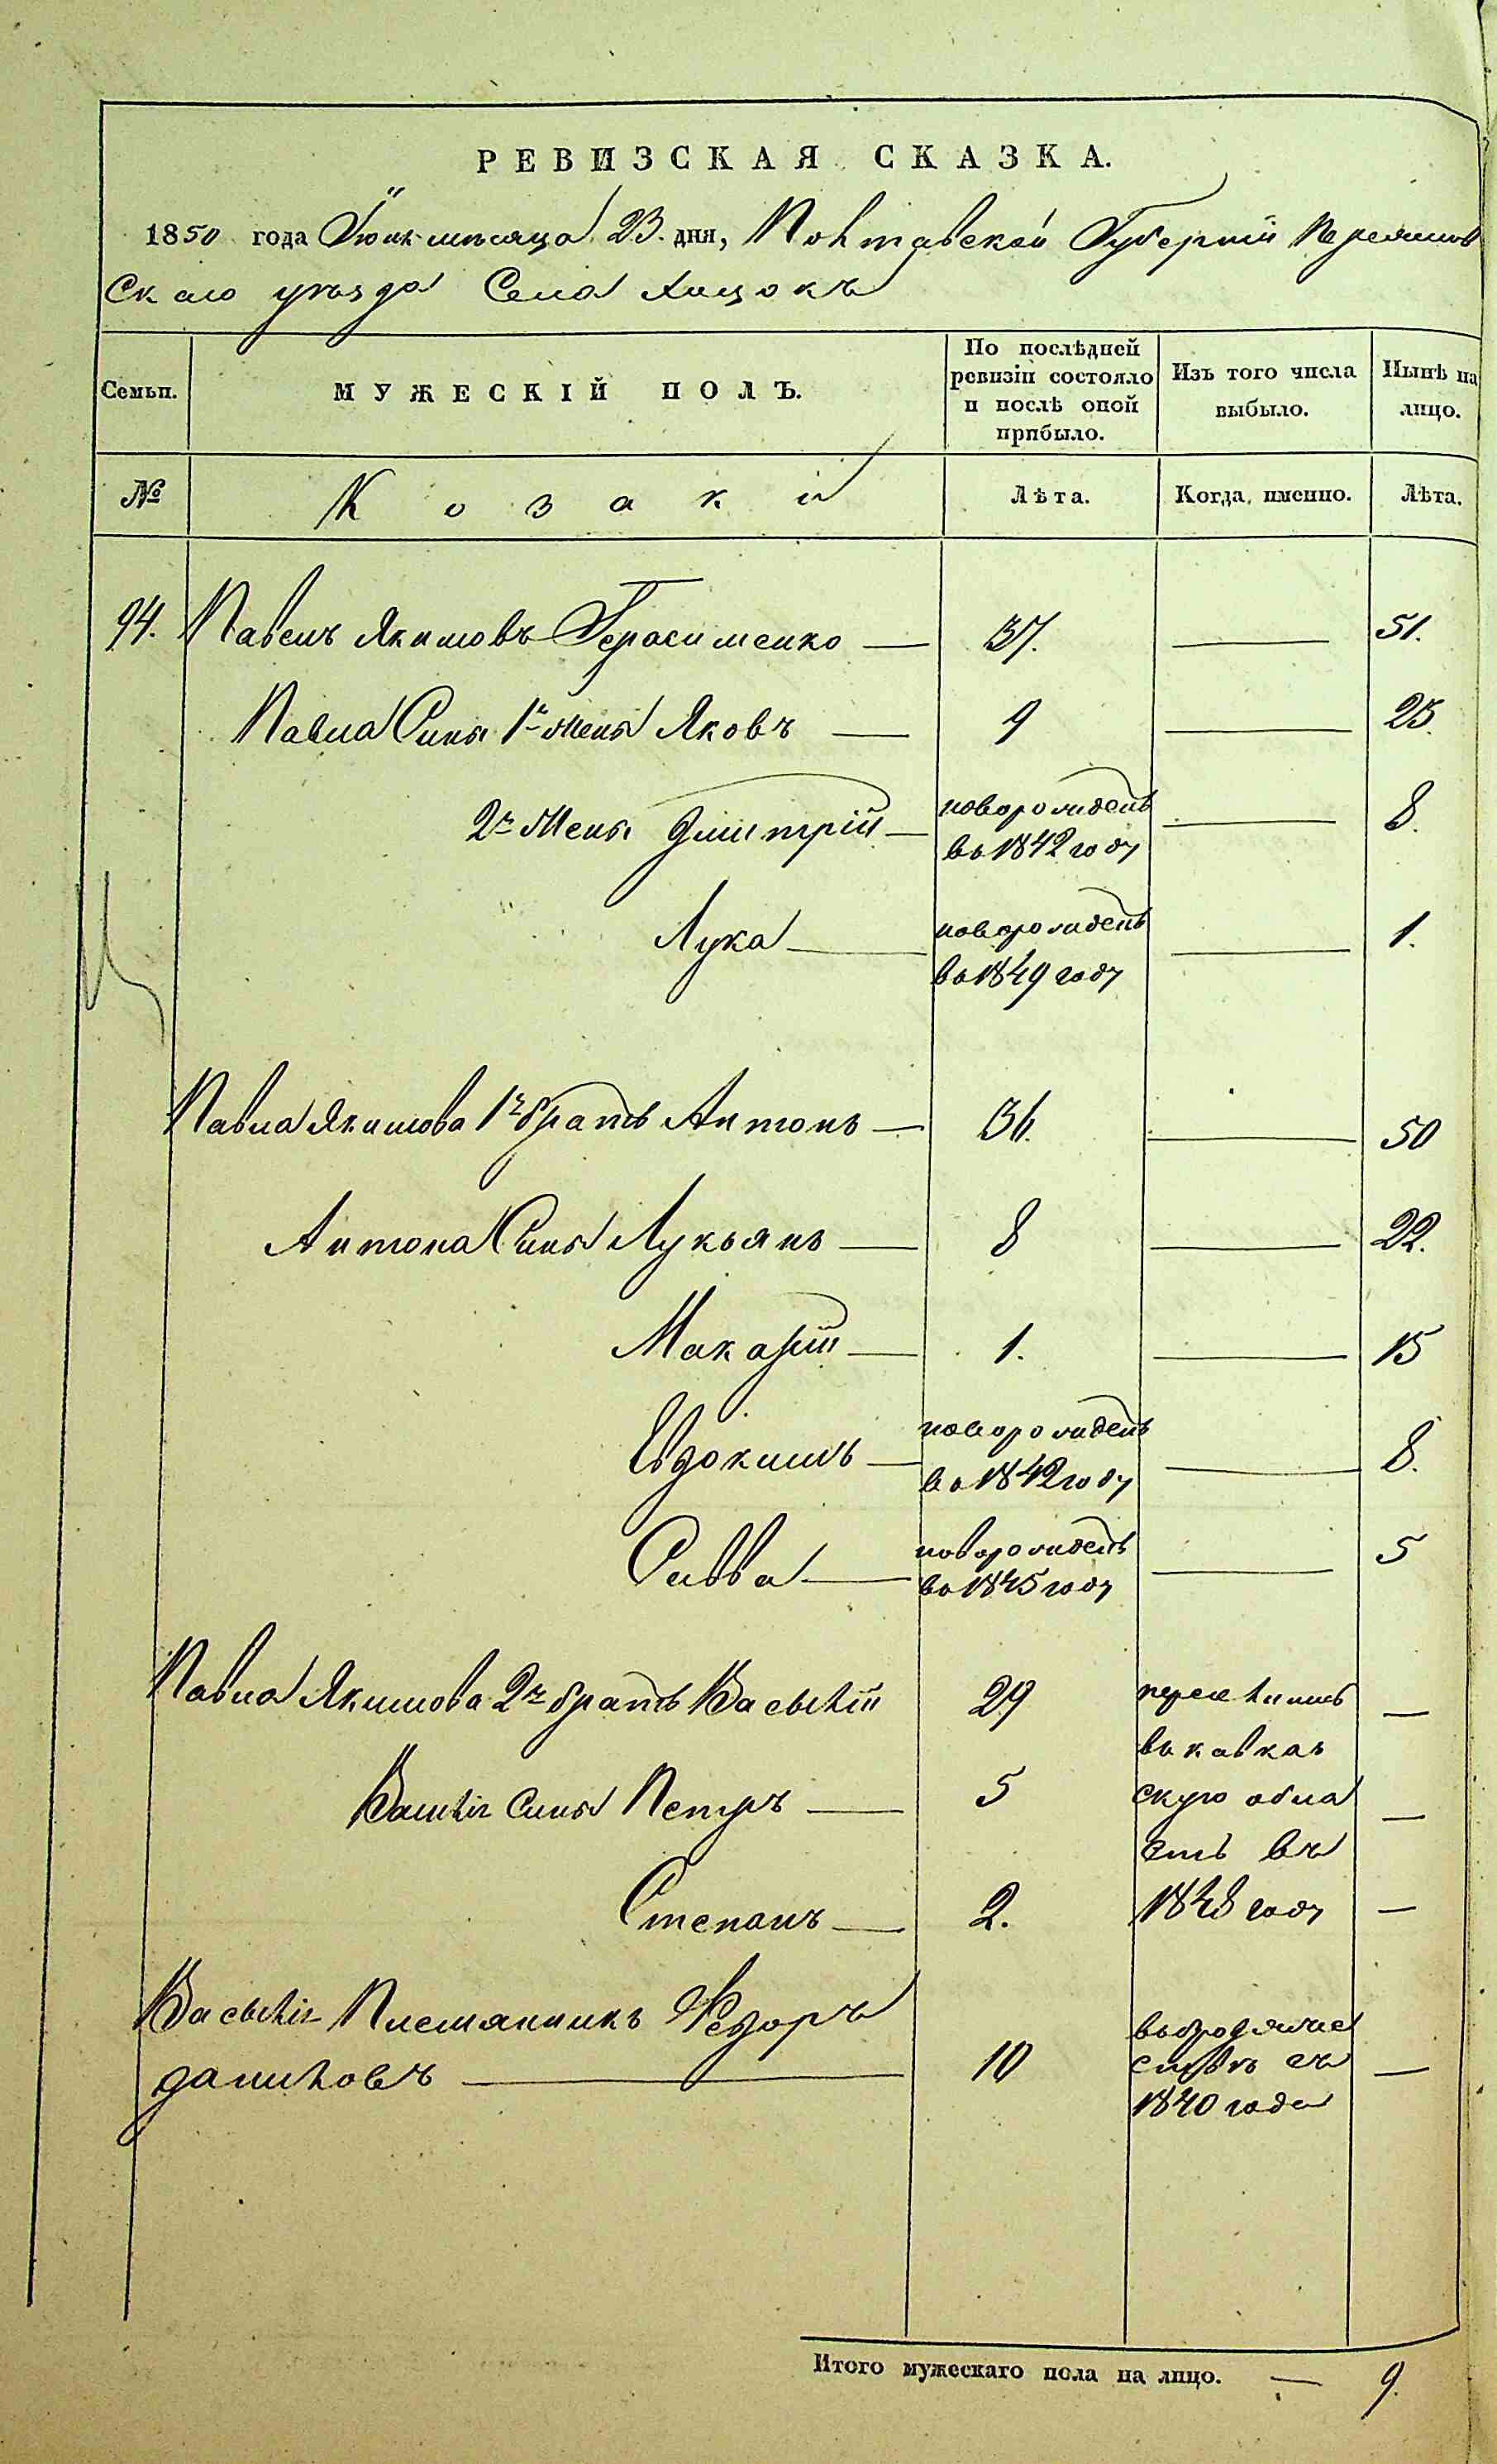 РЕВИЗСКАЯ СКАЗКА.
1850 года Іюня месяца 23. дня, Полтавской Губерніи Переяслов
Скаго уѣзда Села Хицокъ
Семьи. МУЖЕСКІЙ ПОЛЪ. По послѣдней ревизіи состояло и послѣ оной прибыло. Изъ того числа выбыло. Нынѣ на лицо.
№ Козаки Лѣта. Когда именно. Лѣта.
94. Павелъ Якимовъ Герасименко — 37. — 51.
Павла Сыны 1й жены Яковъ — 9 — 23.
2й Жены Дмитрій — новорожденъ во 1842 году — 8.
Лука — новорожденъ во 1849 году — 1.
Павла Якимова 1й братъ Антонъ — 36. — 50
Антона Сыны Лукьянъ — 8 — 22.
Макарій — 1. — 15
Евдокимъ — новорожденъ во 1842 году — 8.
Савва — новорожденъ во 1845 году — 5
Павла Якимова 2й братъ Василій 29 переселились —
въ кавказ
Василія Сыны Петръ — 5 скую обла —
сть въ
Степанъ — 2. 1848 году —
Василія Племянникъ Федоръ въ бродяже
Даниловъ — 10 ствѣ съ —
1840 года
Итого мужескаго пола на лицо. — 9.